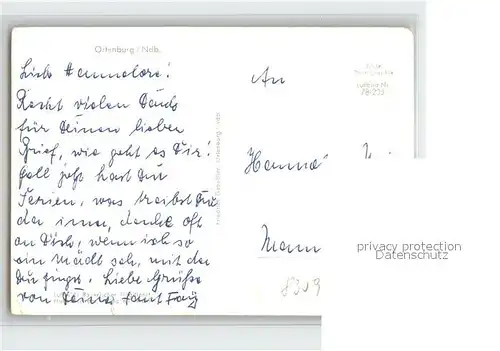 Ortenburg / Ndb.
Liebe Hannelore!
Recht vielen Dank
für Deinen lieben
Brief, wie geht es Dir!
gell jetzt hast Du
Ferien, was treibst Du
da immer, denke oft
an Dich, wenn ich so
ein Mädl seh, mit der
Du gingst. Liebe Grüße
von Deine Tant Fany
An
Hanne
Mann
78/235
8303
privacy protection
Datenschutz